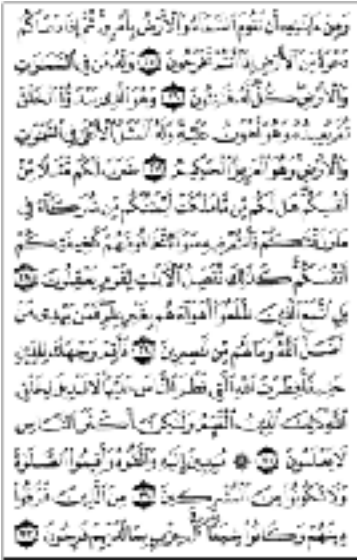 ومن ءايته أن تقوم السماء والأرض بأمره ثم إذا دعاكم
دعوة من الأرض إذا أنتم تخرجون ٢٥ وله من في السموت
والأرض كل له قنتون ٢٦ وهو الذي يبدؤا الخلق
ثم يعيده وهو أهون عليه وله المثل الأعلى في السموت
والأرض وهو العزيز الحكيم ٢٧ ضرب لكم مثلا من
أنفسكم هل لكم من ما ملكت أيمنكم من شركاء في
ما رزقنكم فأنتم فيه سواء تخافونهم كخيفتكم
أنفسكم كذلك نفصل الأيت لقوم يعقلون ٢٨
بل اتبع الذين ظلموا أهواءهم بغير علم فمن يهدي من
أضل الله وما لهم من نصرين ٢٩ فأقم وجهك للدين
حنيفا فطرت الله التي فطر الناس عليها لا تبديل لخلق
الله ذلك الدين القيم ولكن أكثر الناس
لا يعلمون ٣٠ ۞ منيبين إليه واتقوه وأقيموا الصلوة
ولا تكونوا من المشركين ٣١ من الذين فرقوا
دينهم وكانوا شيعا كل حزب بما لديهم فرحون ٣٢